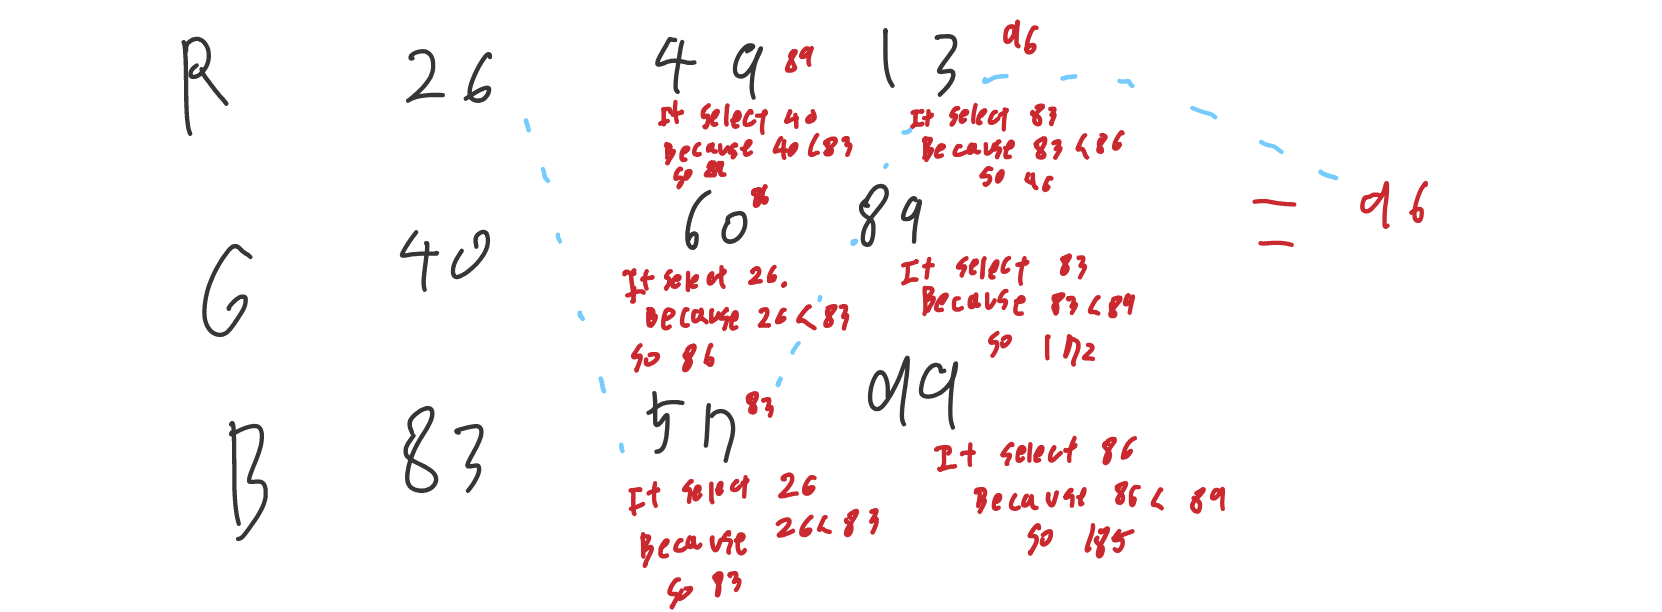 R 26 49 89 13 96
It select 40
Because 40<83
so 89
It select 83
Because 83<86
so 96
G 40 60 86 89
= 96
It select 26.
Because 26<83
so 86
It select 83
Because 83<89
so 172
B 83 57 83 99
It select 26
Because 26<83
so 83
It select 86
Because 86<89
so 185